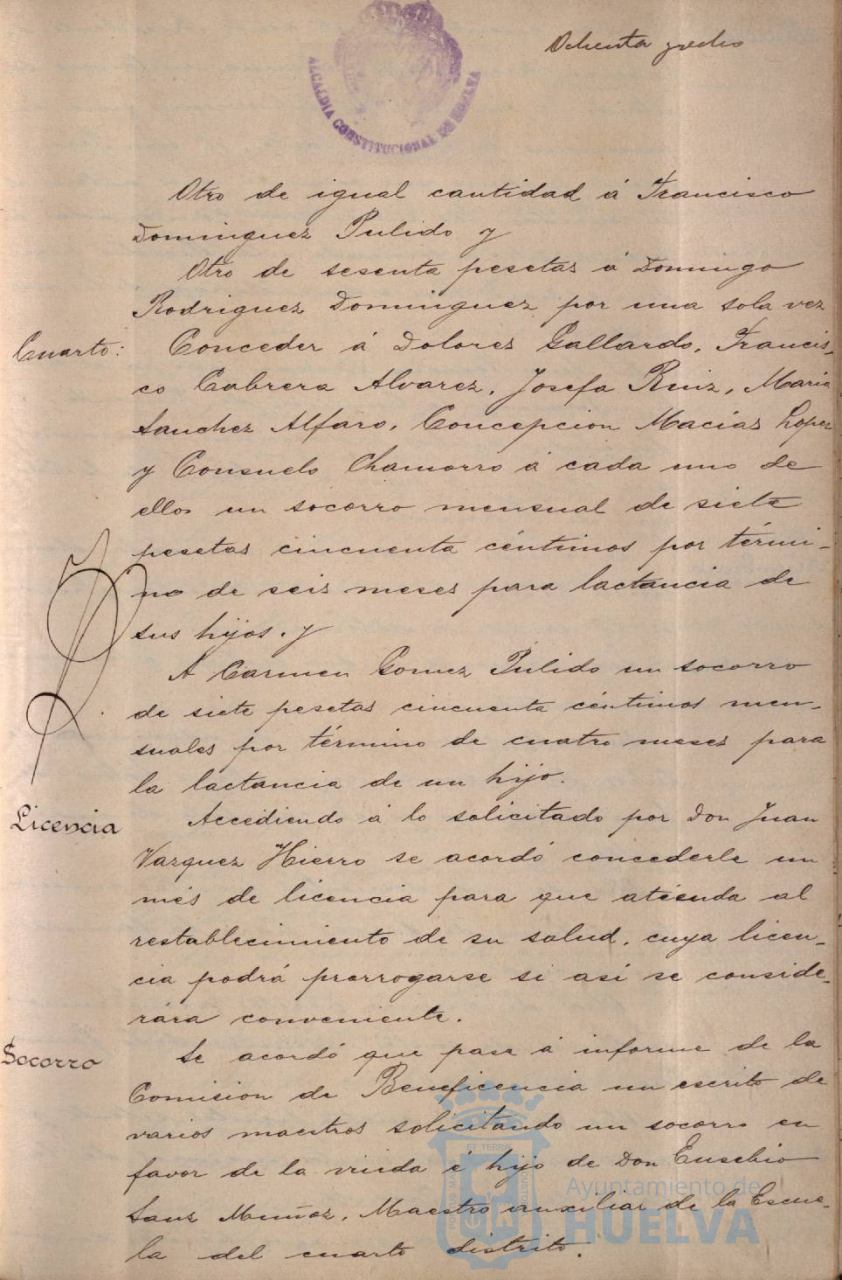 Ochenta y ocho
ALCALDIA CONSTITUCIONAL DE HUELVA
Otro de igual cantidad á Francisco
Dominguez Pulido y
Otro de sesenta pesetas á Domingo
Rodriguez Dominguez por una sola vez
Cuarto:
Conceder á Dolores Gallardo, Francis-
co Cabrera Alvarez, Josefa Ruiz, Maria
Sanchez Alfaro, Concepcion Macias Lopez
y Consuelo Chamorro á cada uno de
ellos un socorro mensual de siete
pesetas cincuenta céntimos por térmi-
no de seis meses para lactancia de
sus hijos. y
A Carmen Gomez Pulido un socorro
de siete pesetas cincuenta céntimos men-
suales por término de cuatro meses para
la lactancia de un hijo.
Licencia
Accediendo á lo solicitado por Don Juan
Vazquez Hierro se acordó concederle un
més de licencia para que atienda al
restablecimiento de su salud, cuya licen-
cia podrá prorrogarse si así se conside-
rára conveniente.
Socorro
Se acordó que pase á informe de la
Comision de Beneficencia un escrito de
varios maestros solicitando un socorro en
favor de la viuda é hijo de Don Eusebio
Sanz Muñoz, Maestro auxiliar de la Escue-
la del cuarto distrito.
Ayuntamiento de
HUELVA